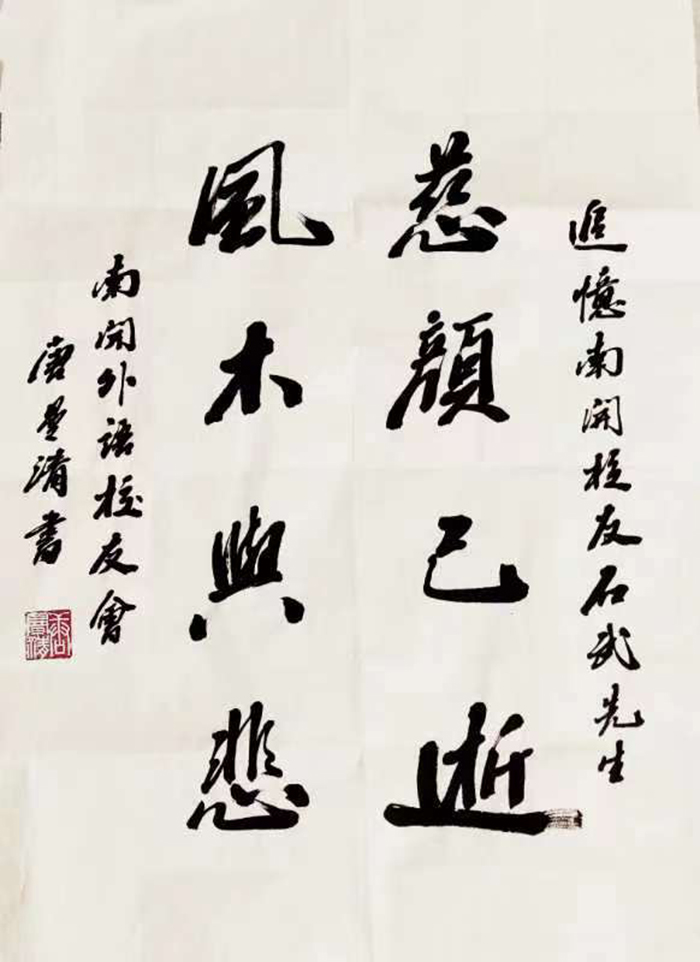 追憶南開校友石武先生
慈顏已逝
風木與悲
南開外語校友會
唐清書